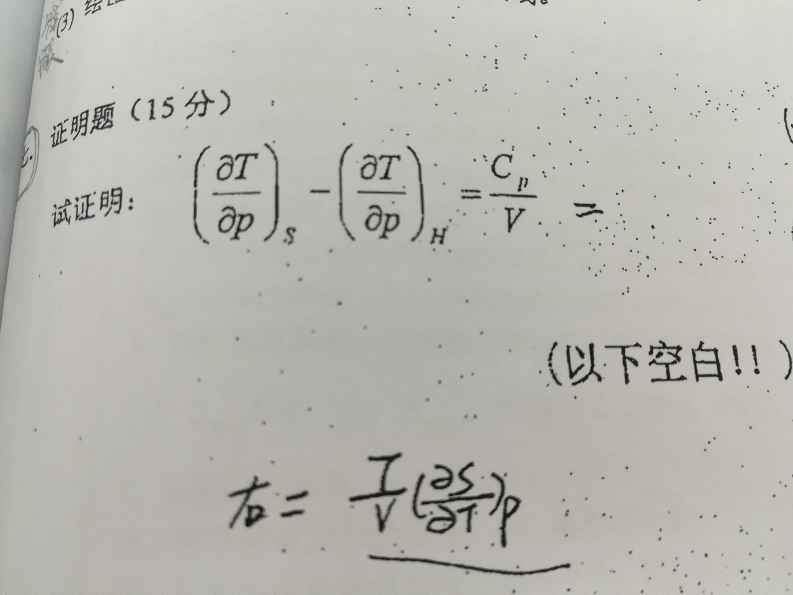 (3) 绘
证明题（15分）
试证明： (∂T/∂p)_S − (∂T/∂p)_H = C_p/V =
(以下空白!!)
右 = T/V (∂S/∂T)_p